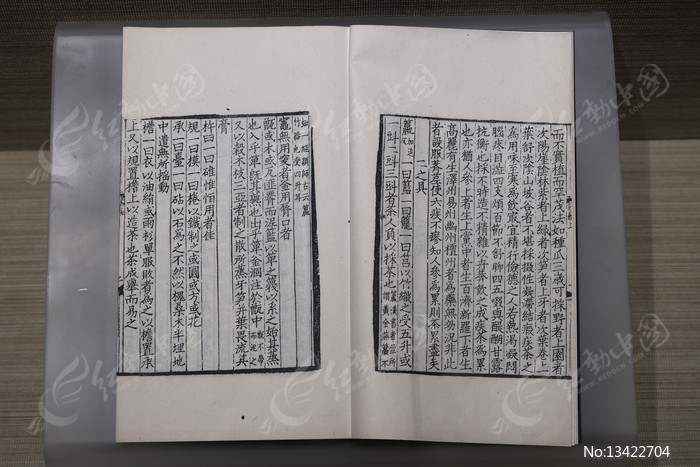 而不實植而罕茂法如種瓜三歲可採野者上園者
次陽崖陰林紫者上綠者次笋者上牙者次葉卷上
葉舒次陰山坡谷者不堪採掇性凝滯結瘕疾茶之
為用味至寒為飲最宜精行儉德之人若熱渴凝悶
腦疼目澁四支煩百節不舒聊四五啜與醍醐甘露
抗衡也採不時造不精雜以卉莽飲之成疾茶為累
也亦猶人參上者生上黨中者生百濟新羅下者生
高麗有生澤州易州幽州檀州者為藥無効況非此
者設服薺苨使六疾不瘳知人參為累則茶累盡矣
二之具
籯加追反一曰籃一曰籠一曰筥以竹織之受五升或
一㪷二㪷三㪷者茶人負以採茶也籯漢書音盈所謂黃金滿籯不
如一經顏師古云籯竹器也受四升耳
竈無用突者釜用脣口者
甑或木或瓦匪腰而泥籃以箄之篾以系之始其蒸
也入乎箄既其熟也出乎箄釜涸注於甑中甑不帶而泥之
又以穀木枝三亞者制之散所蒸牙笋并葉畏流其
膏
杵臼一曰碓惟恒用者佳
規一曰模一曰棬以鐵制之或圓或方或花
承一曰臺一曰砧以石為之不然以槐桑木半埋地
中遣無所搖動
襜一曰衣以油絹或雨衫單服敗者為之以襜置承
上又以規置襜上以造茶也茶成舉而易之
红动中国
WWW.REDOCN.COM
No:13422704